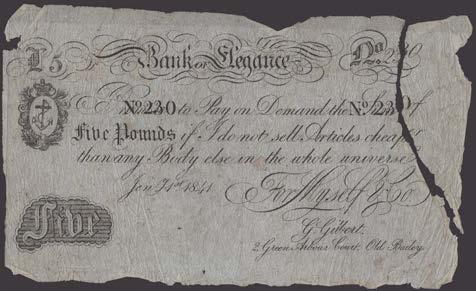 £5 Bank of Elegance No. 230
I Promise to Pay on Demand the Sum of
No. 230 No. 230
Five Pounds if I do not sell Articles cheaper
than any Body else in the whole universe
Jany 1st 1841 For Myself & Co
Five G. Gibert.
2. Green Arbour Court, Old Bailey